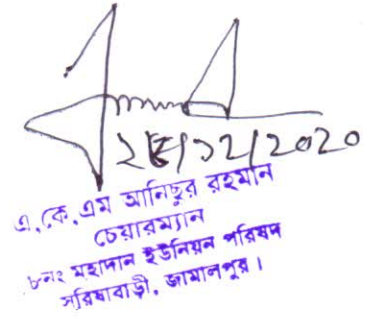 /১২/২০২০
এ, কে, এম আনিছুর রহমান
চেয়ারম্যান
৮নং মহাদান ইউনিয়ন পরিষদ
সরিষাবাড়ী, জামালপুর।